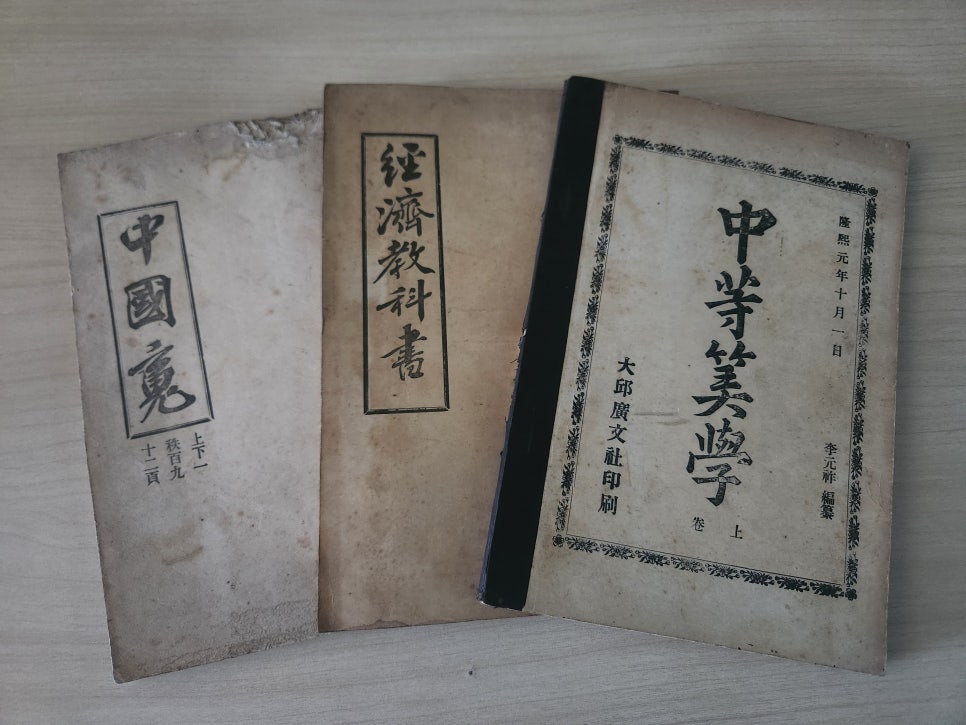 中國䰟
上下一
秩百九
十二頁
經濟教科書
隆熙元年十月一日
李元祚 編纂
中等筭學
上卷
大邱廣文社印刷